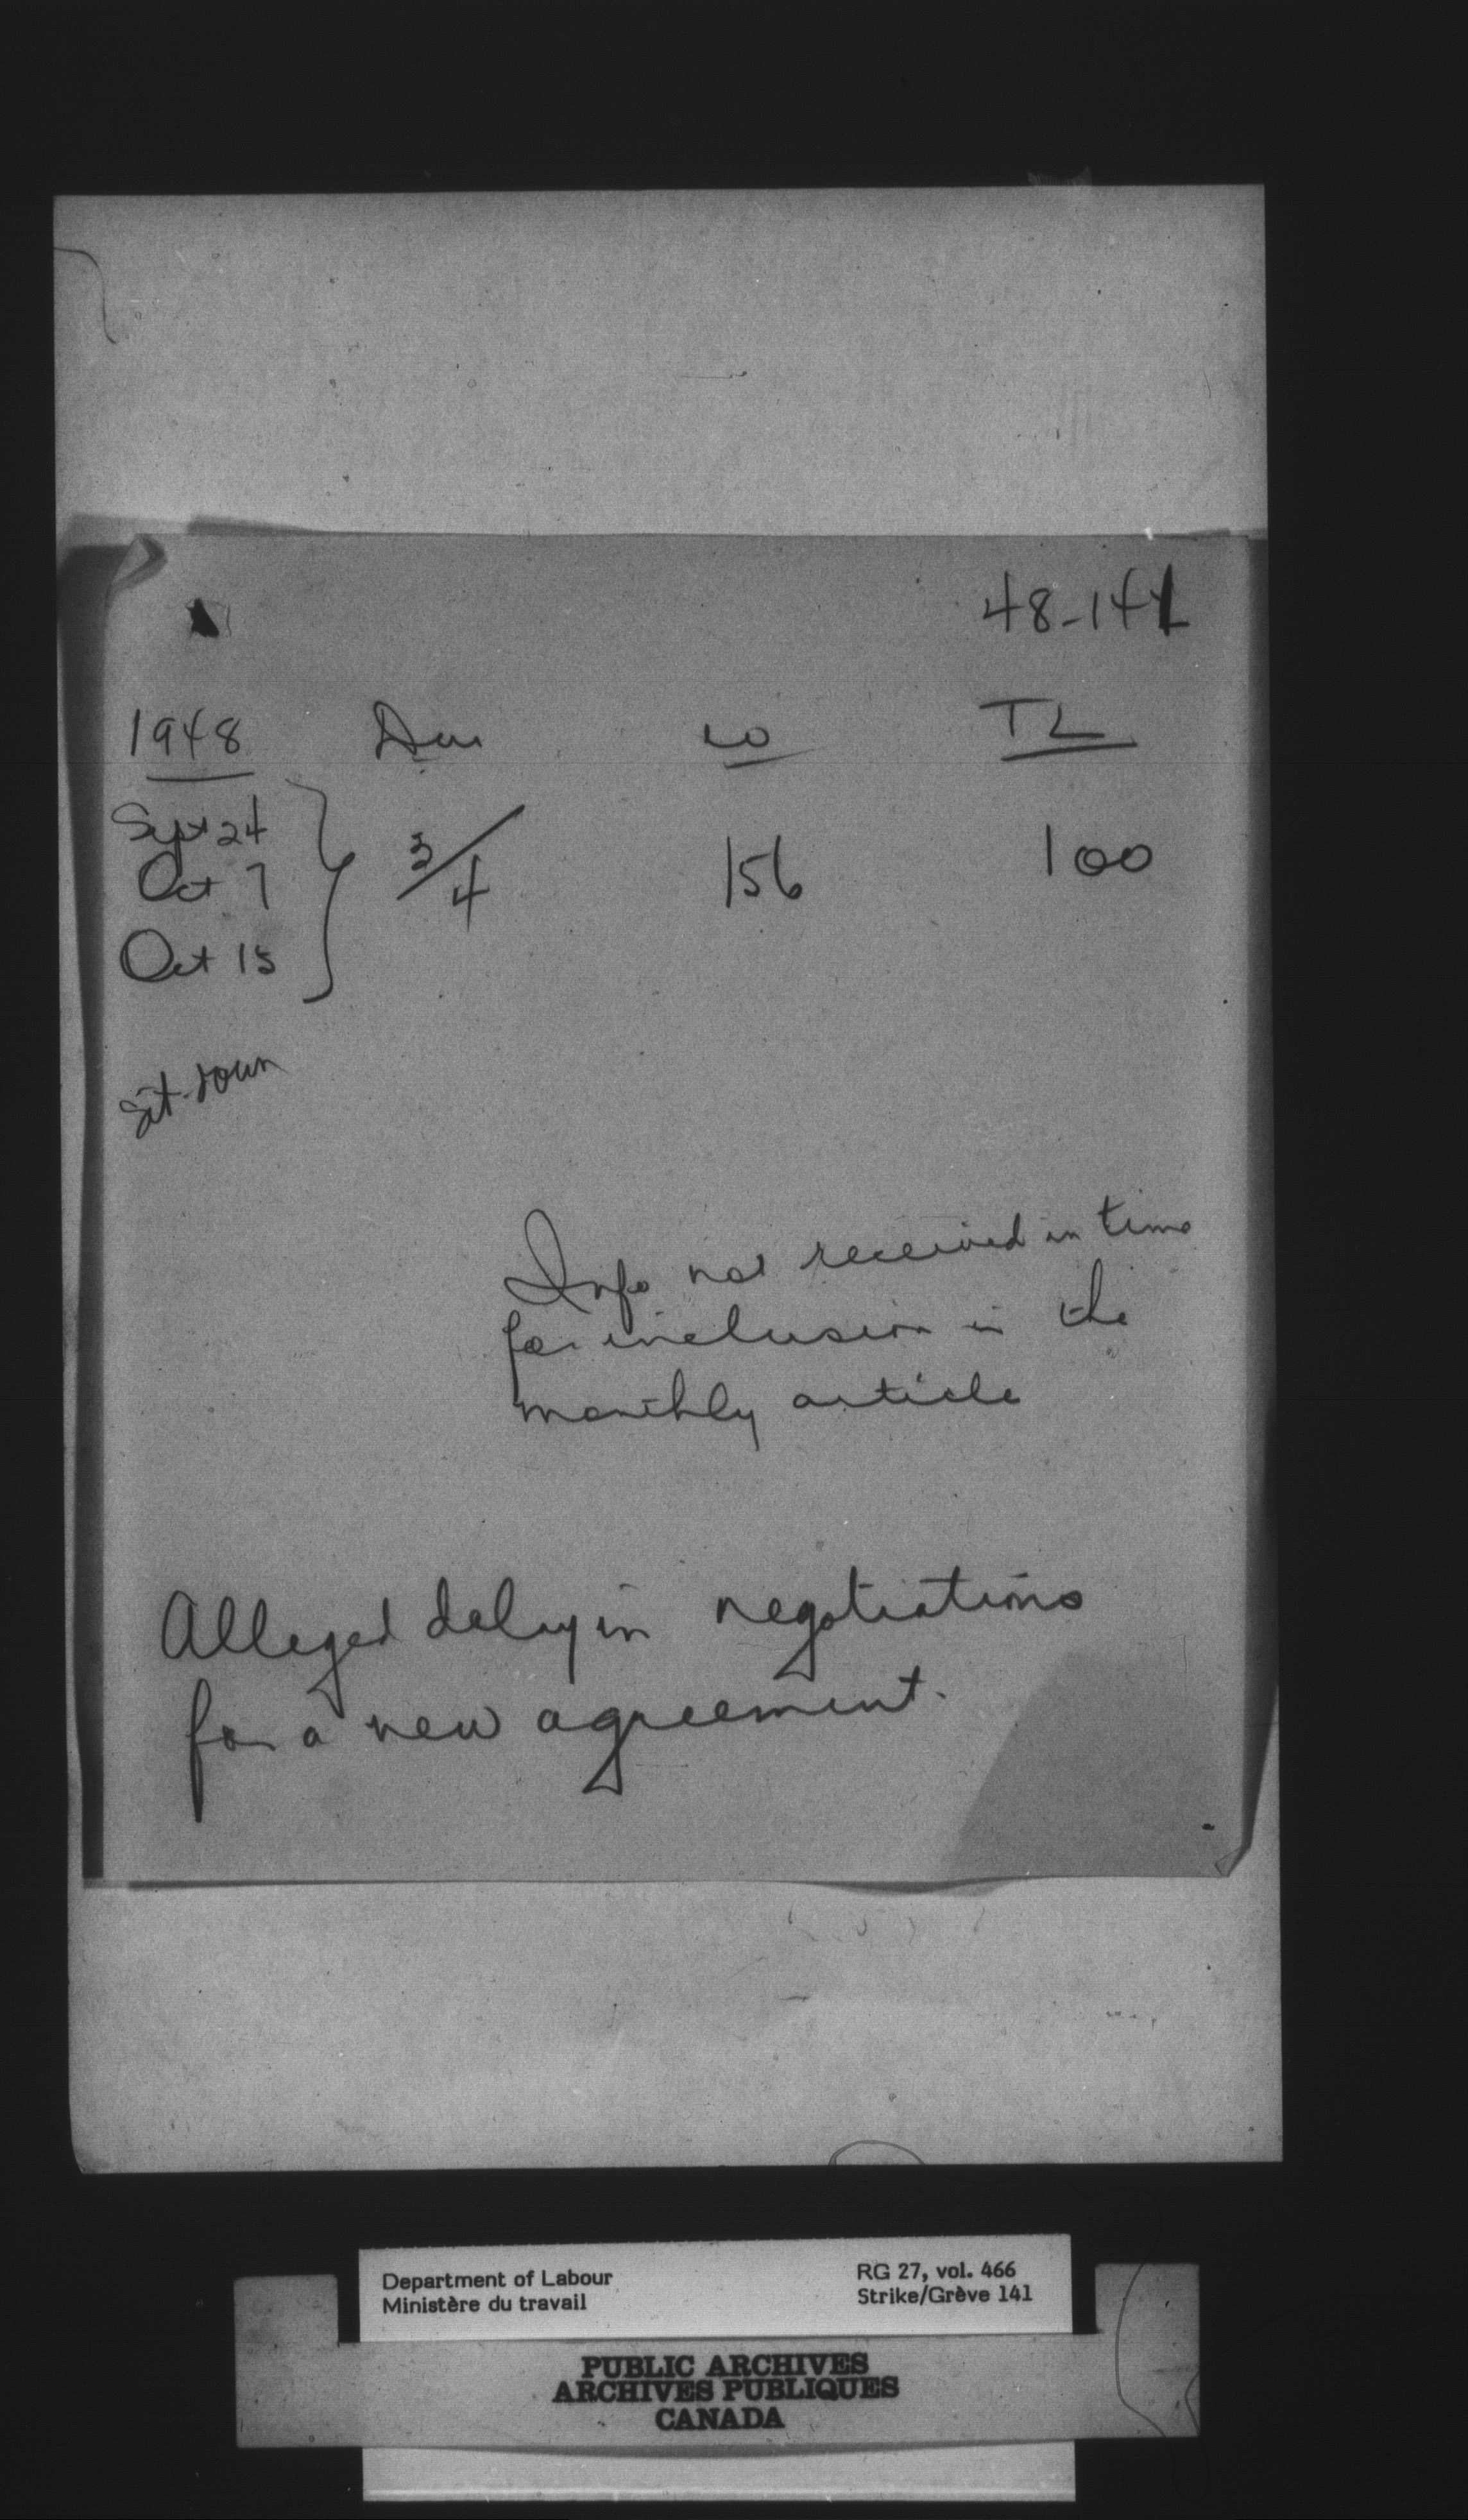 48-141
1948 Dur WO TL
Sept 24
Oct 7 3/4 156 100
Oct 15
Sit-down
Info not received in time
for inclusion in the
monthly article
Alleged delay in negotiations
for a new agreement.
Department of Labour RG 27, vol. 466
Ministère du travail Strike/Grève 141
PUBLIC ARCHIVES
ARCHIVES PUBLIQUES
CANADA